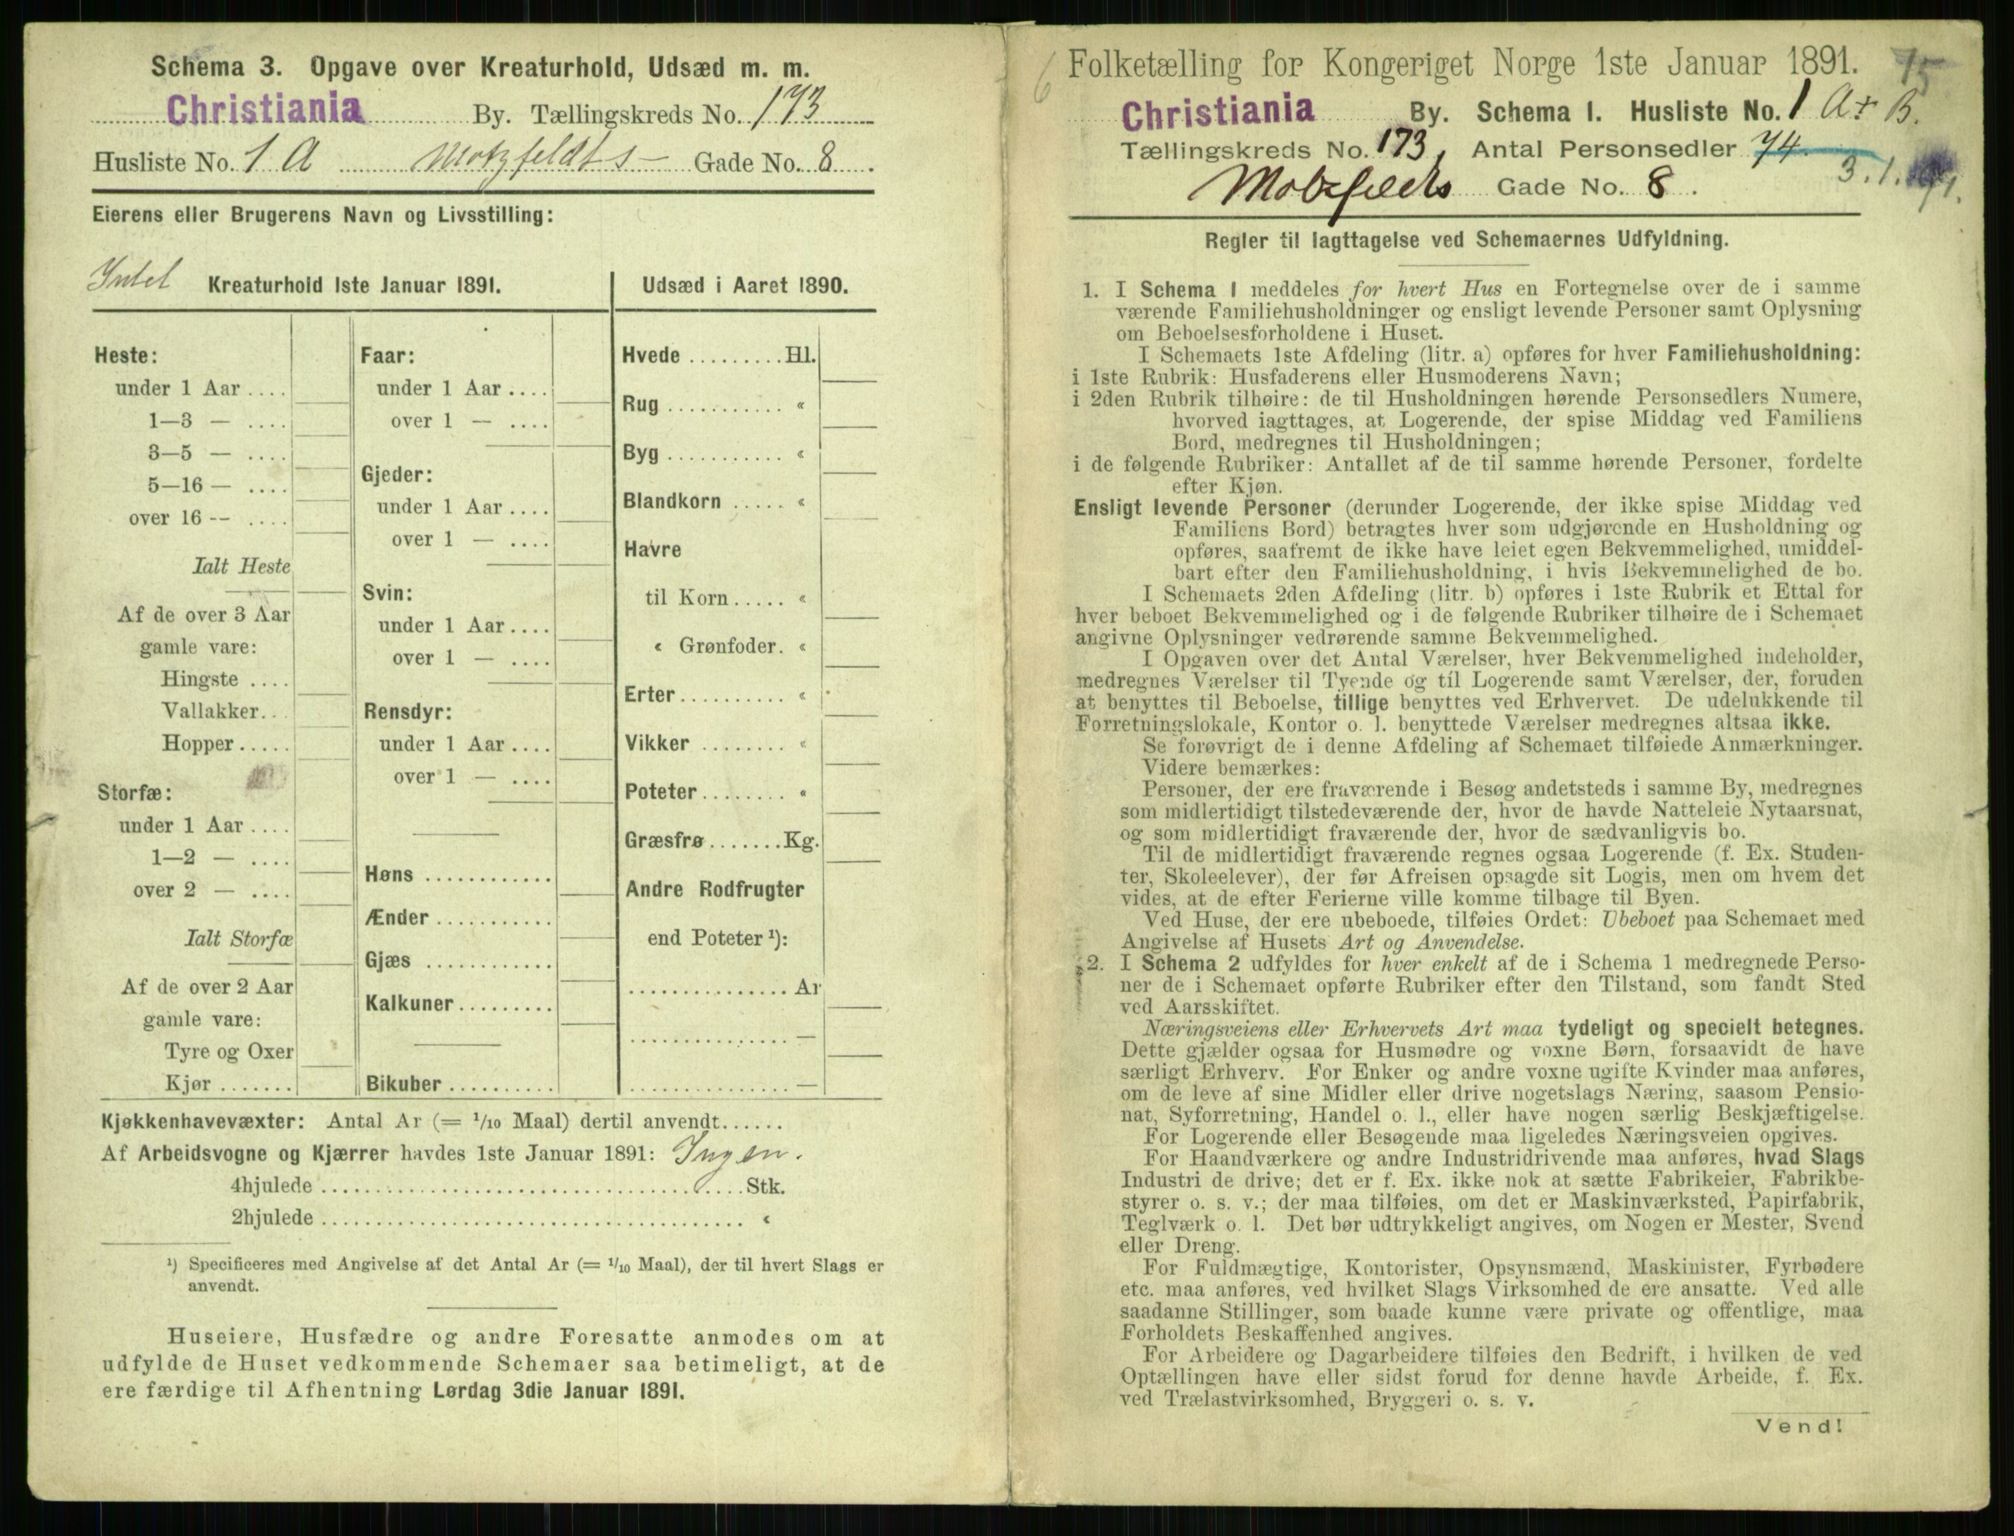 Schema 3. Opgave over Kreaturhold, Udsæd m. m.
Christiania By. Tællingskreds No. 173
Husliste No. 1 A Motzfeldts Gade No. 8.
Eierens eller Brugerens Navn og Livsstilling:
Intet Kreaturhold 1ste Januar 1891.
Heste:
under 1 Aar ....
1—3 — ....
3—5 — ....
5—16 — ....
over 16 -- ....
Ialt Heste
Af de over 3 Aar
gamle vare:
Hingste ....
Vallakker...
Hopper.....
Storfæ:
under 1 Aar ....
1—2 — ....
over 2 — ....
Ialt Storfæ
Af de over 2 Aar
gamle vare:
Tyre og Oxer
Kjør .......
Faar:
under 1 Aar ....
over 1 — ....
Gjeder:
under 1 Aar ....
over 1 — ....
Svin:
under 1 Aar ....
over 1 — ....
Rensdyr:
under 1 Aar ....
over 1 — ....
Høns ............
Ænder ...........
Gjæs ............
Kalkuner.........
Bikuber..........
Udsæd i Aaret 1890.
Hvede .........Hl.
Rug ........... «
Byg ........... «
Blandkorn ..... «
Havre
til Korn ..... «
« Grønfoder. «
Erter.......... «
Vikker ........ «
Poteter........ «
Græsfrø.......Kg.
Andre Rodfrugter
end Poteter ¹):
............... Ar
............... —
............... —
Kjøkkenhavevæxter: Antal Ar (= ¹/₁₀ Maal) dertil anvendt......
Af Arbeidsvogne og Kjærrer havdes 1ste Januar 1891: Ingen.
4hjulede ........................................ Stk.
2hjulede ........................................ «
¹) Specificeres med Angivelse af det Antal Ar (= ¹/₁₀ Maal), der til hvert Slags er
anvendt.
Huseiere, Husfædre og andre Foresatte anmodes om at
udfylde de Huset vedkommende Schemaer saa betimeligt, at de
ere færdige til Afhentning Lørdag 3die Januar 1891.
6 Folketælling for Kongeriget Norge 1ste Januar 1891. 75
Christiania By. Schema I. Husliste No. 1 A + B.
Tællingskreds No. 173, Antal Personsedler 74
3.1.91.
Motzfeldts Gade No. 8.
Regler til Iagttagelse ved Schemaernes Udfyldning.
1. I Schema 1 meddeles for hvert Hus en Fortegnelse over de i samme
værende Familiehusholdninger og ensligt levende Personer samt Oplysning
om Beboelsesforholdene i Huset.
I Schemaets 1ste Afdeling (litr. a) opføres for hver Familiehusholdning:
i 1ste Rubrik: Husfaderens eller Husmoderens Navn;
i 2den Rubrik tilhøire: de til Husholdningen hørende Personsedlers Numere,
hvorved iagttages, at Logerende, der spise Middag ved Familiens
Bord, medregnes til Husholdningen;
i de følgende Rubriker: Antallet af de til samme hørende Personer, fordelte
efter Kjøn.
Ensligt levende Personer (derunder Logerende, der ikke spise Middag ved
Familiens Bord) betragtes hver som udgjørende en Husholdning og
opføres, saafremt de ikke have leiet egen Bekvemmelighed, umiddel-
bart efter den Familiehusholdning, i hvis Bekvemmelighed de bo.
I Schemaets 2den Afdeling (litr. b) opføres i 1ste Rubrik et Ettal for
hver beboet Bekvemmelighed og i de følgende Rubriker tilhøire de i Schemaet
angivne Oplysninger vedrørende samme Bekvemmelighed.
I Opgaven over det Antal Værelser, hver Bekvemmelighed indeholder,
medregnes Værelser til Tyende og til Logerende samt Værelser, der, foruden
at benyttes til Beboelse, tillige benyttes ved Erhvervet. De udelukkende til
Forretningslokale, Kontor o. l. benyttede Værelser medregnes altsaa ikke.
Se forøvrigt de i denne Afdeling af Schemaet tilføiede Anmærkninger.
Videre bemærkes:
Personer, der ere fraværende i Besøg andetsteds i samme By, medregnes
som midlertidigt tilstedeværende der, hvor de havde Natteleie Nytaarsnat,
og som midlertidigt fraværende der, hvor de sædvanligvis bo.
Til de midlertidigt fraværende regnes ogsaa Logerende (f. Ex. Studen-
ter, Skoleelever), der før Afreisen opsagde sit Logis, men om hvem det
vides, at de efter Ferierne ville komme tilbage til Byen.
Ved Huse, der ere ubeboede, tilføies Ordet: Ubeboet paa Schemaet med
Angivelse af Husets Art og Anvendelse.
2. I Schema 2 udfyldes for hver enkelt af de i Schema 1 medregnede Perso-
ner de i Schemaet opførte Rubriker efter den Tilstand, som fandt Sted
ved Aarsskiftet.
Næringsveiens eller Erhvervets Art maa tydeligt og specielt betegnes.
Dette gjælder ogsaa for Husmødre og voxne Børn, forsaavidt de have
særligt Erhverv. For Enker og andre voxne ugifte Kvinder maa anføres,
om de leve af sine Midler eller drive nogetslags Næring, saasom Pensio-
nat, Syforretning, Handel o. l., eller have nogen særlig Beskjæftigelse.
For Logerende eller Besøgende maa ligeledes Næringsveien opgives.
For Haandværkere og andre Industridrivende maa anføres, hvad Slags
Industri de drive; det er f. Ex. ikke nok at sætte Fabrikeier, Fabrikbe-
styrer o. s. v.; der maa tilføies, om det er Maskinværksted, Papirfabrik,
Teglværk o. l. Det bør udtrykkeligt angives, om Nogen er Mester, Svend
eller Dreng.
For Fuldmægtige, Kontorister, Opsynsmænd, Maskinister, Fyrbødere
etc. maa anføres, ved hvilket Slags Virksomhed de ere ansatte. Ved alle
saadanne Stillinger, som baade kunne være private og offentlige, maa
Forholdets Beskaffenhed angives.
For Arbeidere og Dagarbeidere tilføies den Bedrift, i hvilken de ved
Optællingen have eller sidst forud for denne havde Arbeide, f. Ex.
ved Trælastvirksomhed, Bryggeri o. s. v.
Vend!